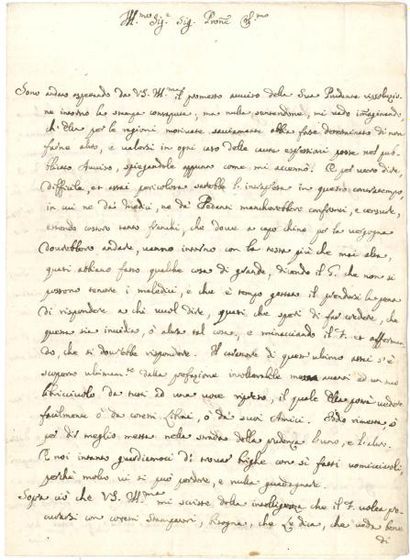 Ill.mo Sig.r Sig. Prone
Sono andato aspettando da VS. Ill.ma il promesso avviso della Sua Prudente risoluzio-
ne intorno la stampa consaputa, ma nulla sentendone, mi vado imaginando,
ch'Ella per le ragioni motivate saviamente abbia forse determinato di non
farne altro, e valersi in ogni caso delle caute espressioni poste nel pub-
blicato Avviso, spiegandole appunto come mi accennò. E per vero dire,
difficile, et assai pericolosa sarebbe l'impresa in questo contratempo,
in cui ne dai Medici, ne da' Pedanti mancherebbero
essendo costoro tanto sfaciati, che dove a capo chino per la vergogna
dovrebbero andare, vanno intorno con la testa più che mai alta,
quasi abbiano fatto qualche cosa di grande, dicendo il G. che non si
possono tenere i maledici, e che è tempo gettato il prendersi la pena
di rispondere a chi vuol dire, quasi, che speri di far credere, che
questa sia invidia, o altra tal cosa, e minacciando il F. et afferman-
do, che si dovrebbe rispondere. Il
dalla prefazione intollerabile messa avanti ad un suo
libricciuolo da tutti ad una voce ripreso, il quale Ella potrà vedere
facilmente o da cotesti Librai, o da' suoi Amici. Tutto rimetto
per di meglio messa nella strada della prudenza l'uno, e l'altro.
E noi intanto guardiamoci di trovar brighe con sì fatti uomicciuoli,
perchè molto vi si può perdere, e nulla guadagnare.
Sopra ciò che VS. Ill.ma mi scrisse della intelligenza che il F. volea pro-
curarsi con cotesti Stampatori, bisogna, che Le dica, che
di